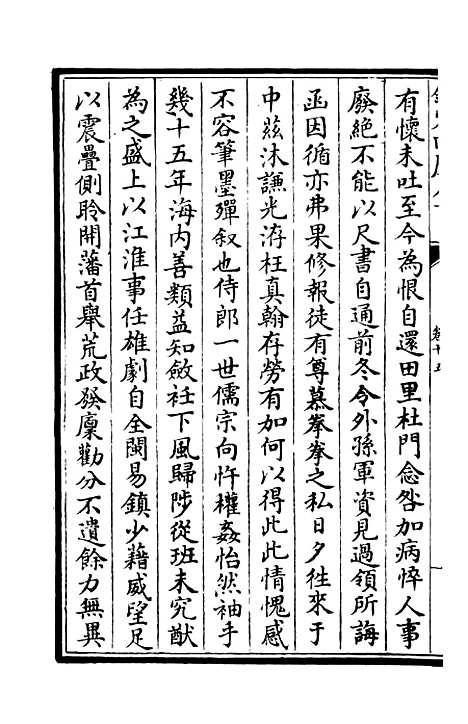 有懷未吐至今為恨自還田里杜門念咎加病悴人事
廢絕不能以尺書自通前冬令外孫軍資見過領所誨
函因循亦弗果修報徒有尊慕拳拳之私日夕往來于
中茲沐謙光洊枉真翰存勞有加如何以得此此情愧感
不容筆墨殫叙也侍郎一世儒宗向忤權姦怡然袖手
幾十五年海内善類益知斂衽下風歸陟從班未究猷
為之盛上以江淮事任雄劇自全閩易鎮少藉威望足
以震疊側聆開藩首舉荒政發廩勸分不遺餘力無異
卷十五